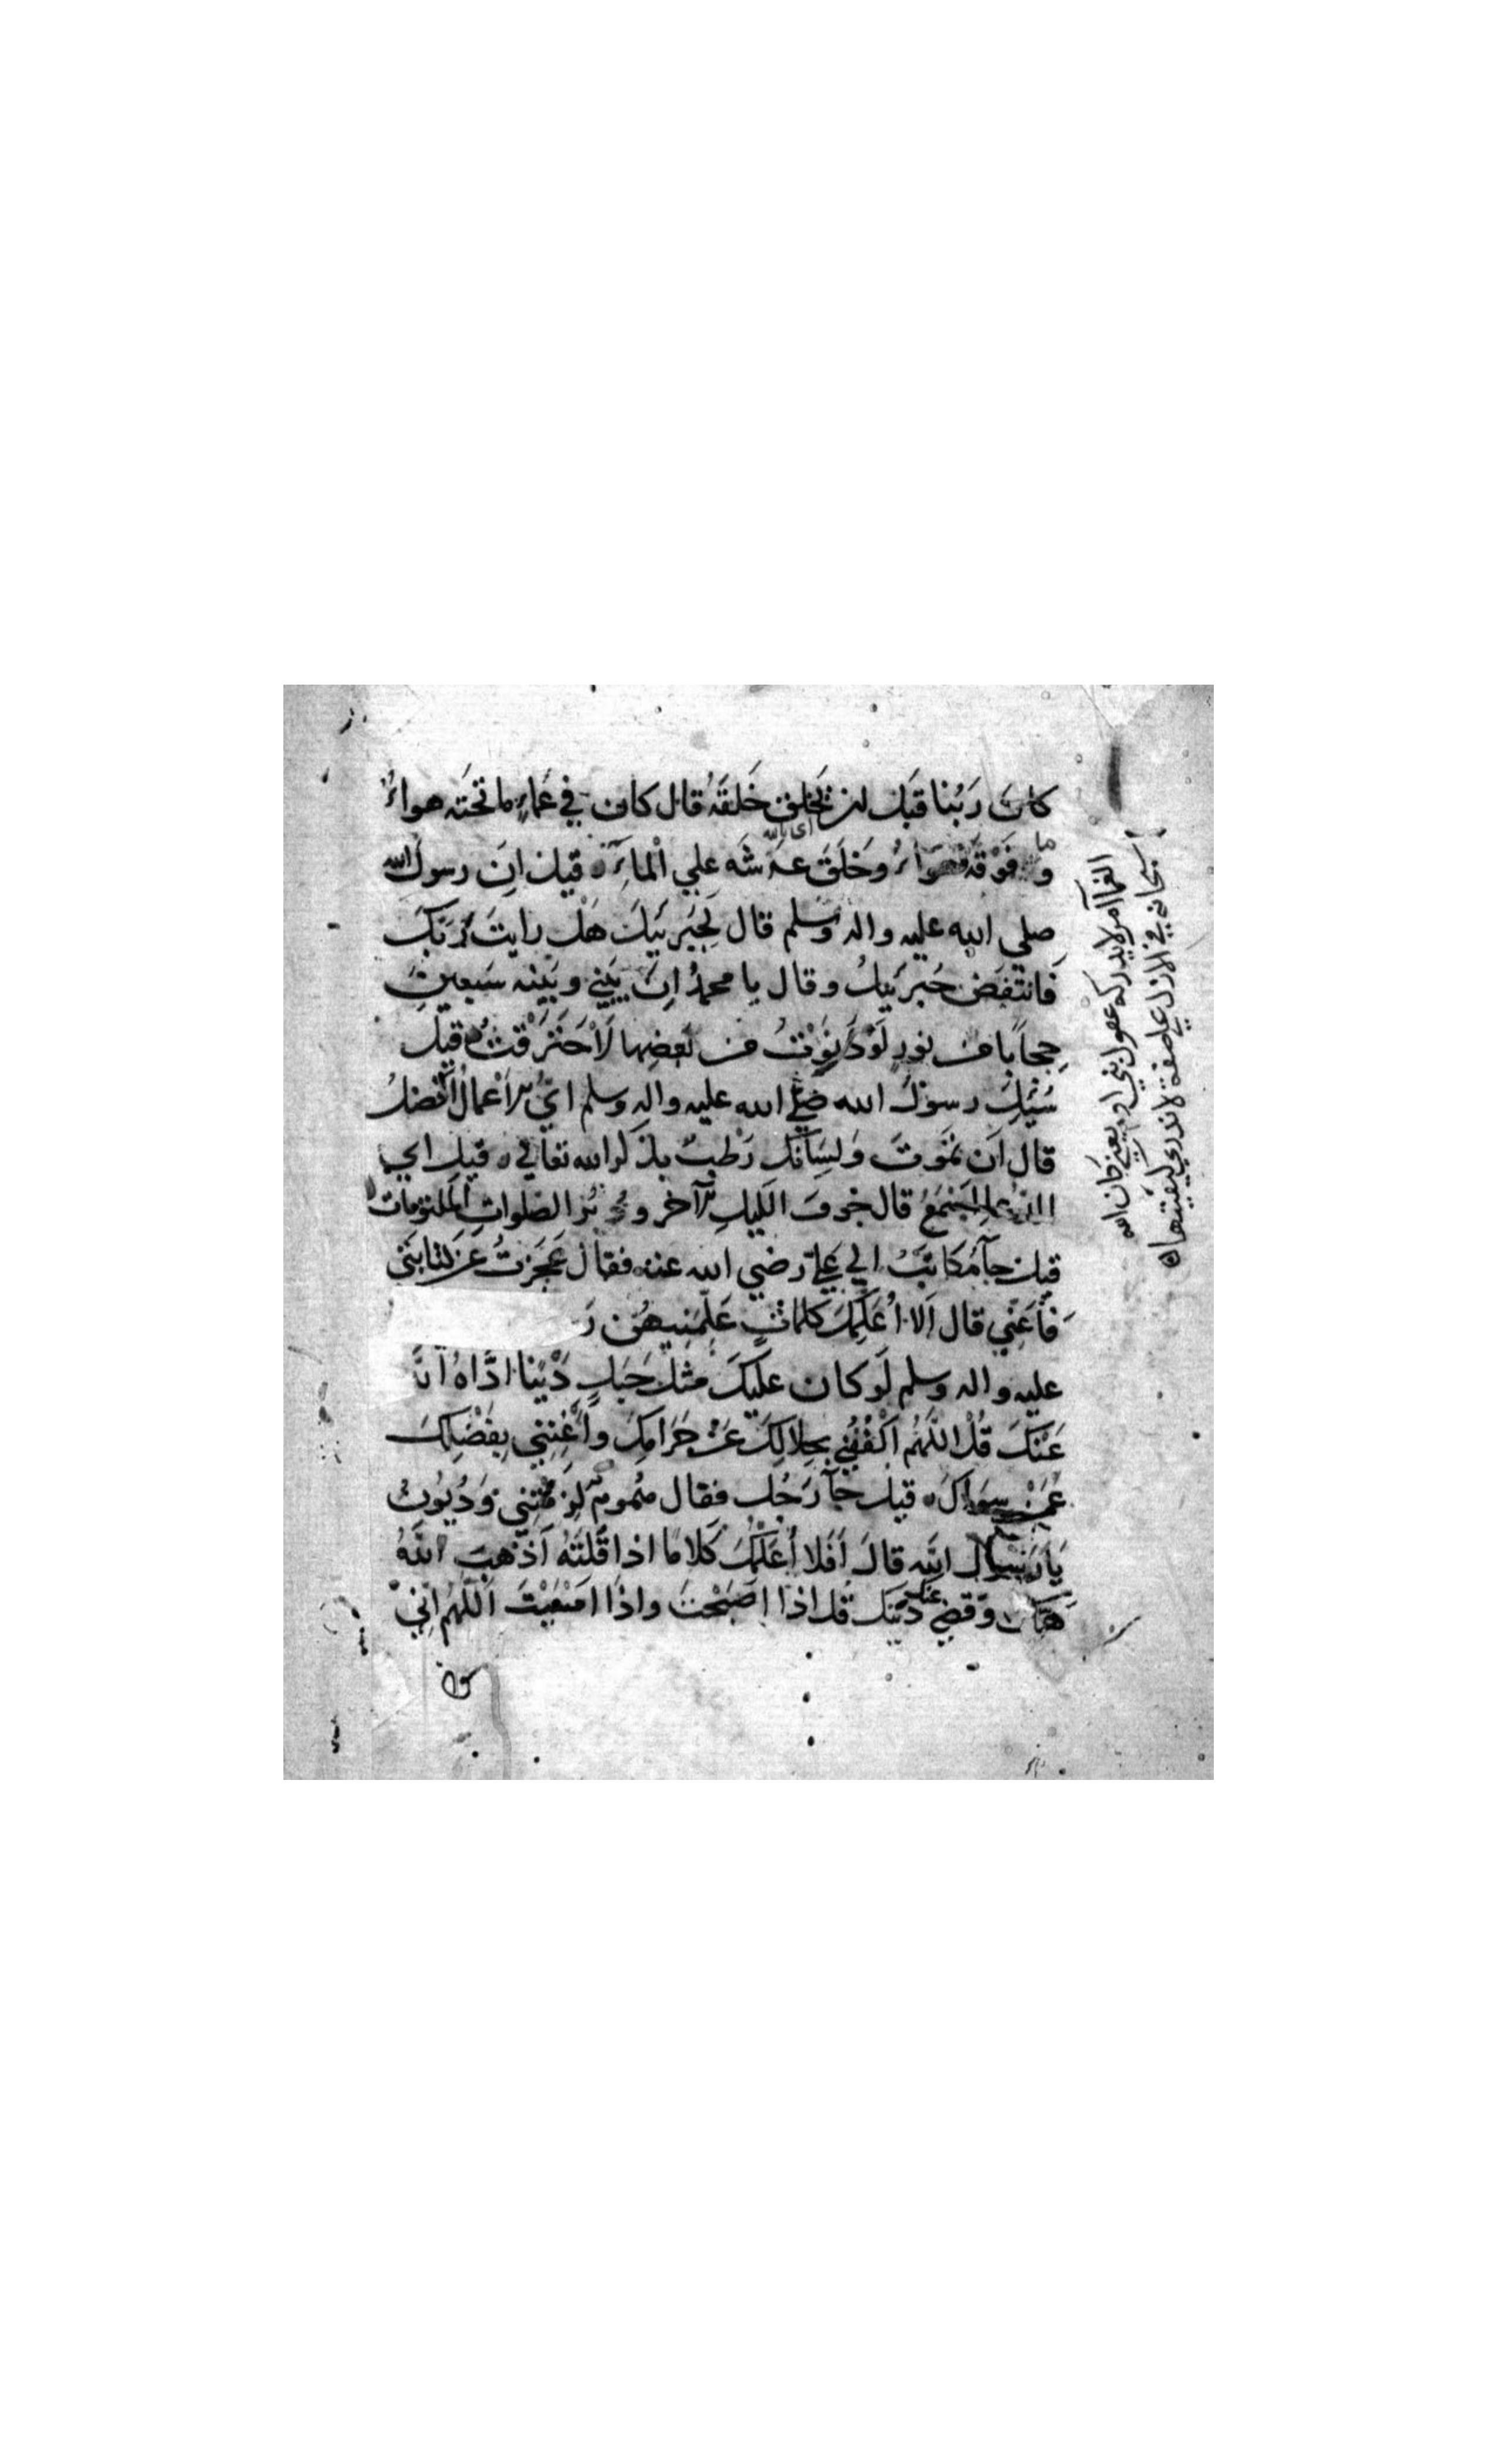 كانَ رَبُّنا قَبْلَ ان يَخْلقَ خَلقَهُ قال كان في عَماءٍ ما تحْتَه هواءٌ
وما فَوْقَهُ هَوَاءٌ وخَلَقَ عرشَه علي الْماءِ قيل انَ رسولَ الله
اي الله
صلي الله عليه واله وسلم قال لِجبْرَئيلَ هَلْ رايتَ رَبَّكَ
فانتفَضَ جبرئيلُ وقال يا محمدُ انَ بَيْنِي وبَيْنه سَبعينَ
حِجاباً من نورٍ لَوْ دَنَوْتُ من بَعضِها لَاْحتَرَقْتُ قيل
سُئِلَ رسولُ الله صلي الله عليه واله وسلم ايُّ الاعمالِ افضلُ
قال اَن تمَوتَ وَلِسَانُكَ رَطْبٌ بذكر الله تعالي قيل اي
الدعاءِ اسمَعُ قال جوفَ اللَيلِ الآخر ودُبُرَ الصَلواتِ المكتوبات
قيل جآءَ مكاتَبٌ الي عليّ رضي الله عنه فقال عَجَزتُ عن كتابتي
فأعِنّي قال اَلا اُعَلِّمُكَ كلماتٍ عَلَّمَنِيهُن رَ
عليه واله وسلم لَو كان عليْكَ مثْلُ جَبَلٍ دَيْنا ادَّاهُ الله
عَنْكَ قُلْ اللَهُم اكْفِنِي بحلالِكَ عَنْ حَرَامِكَ وأغْنِنِي بِفَضْلِكَ
عَمَنْ سِوَاكَ قيل جآءَ رَجُل فقال همُومٌ لزمَتْنِي وَدُيُونٌ
يَا رَسولَ اللَه قالَ اَفَلا اُعَلِّمُكَ كَلامًا اذا قُلتَهُ اَذْهبَ اللَهُ
همَّك وقَضي عنك دَيْنَك قُل اذا اصْبَحْتَ واذا امْسَيْتَ اللّهُم انِّي
العمآ امر لا يدركه عقول بني ادم يعني كان الله
سبحانه في الازل علي صفة لا ندري كيفيتها